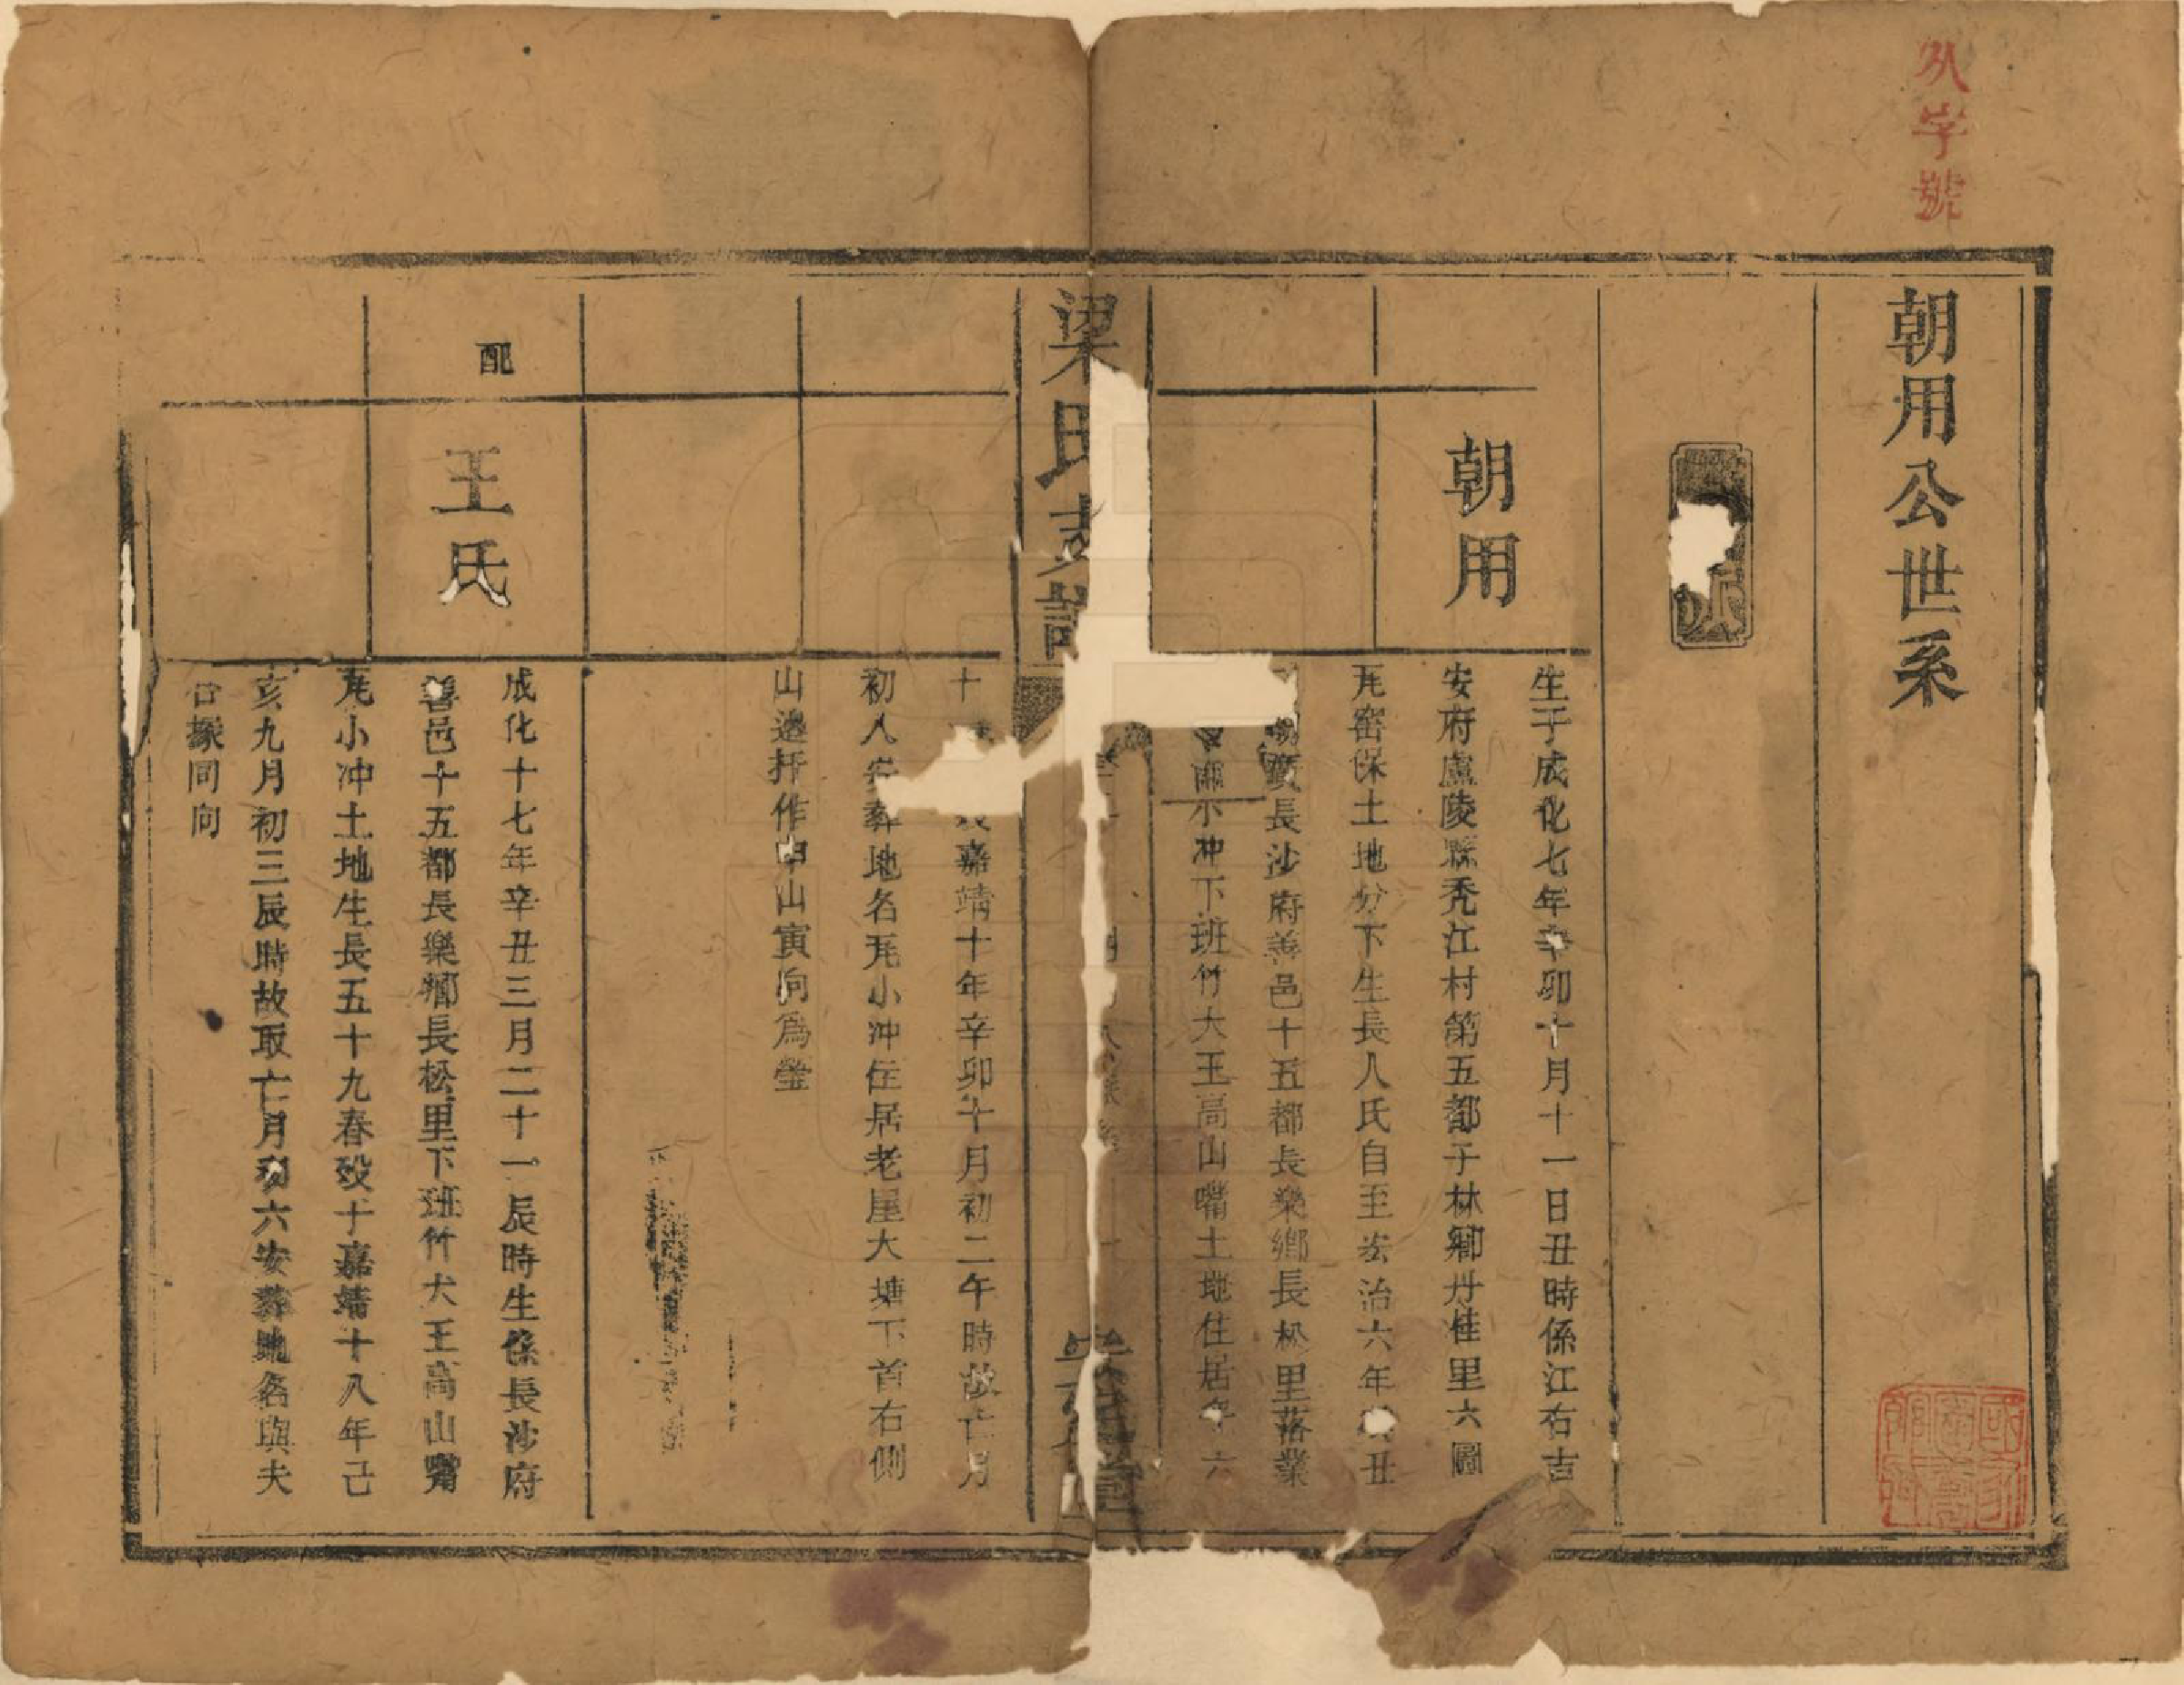 字號
朝用公世系
朝用
生于成化七年辛卯十月十一日丑時係江右吉
安府盧陵縣禿江村第五都于林鄉丹桂里六圖
芫窑保土地分下生長人氏自至宏治六年丑
廣長沙府善邑十五都長樂鄉長松里落業
小冲下班竹大王高山嘴土地住居年六
梁氏支譜
堂
十嘉靖十年辛卯十月初二午時故亡月
初八安葬地名芫小冲住居老屋大塘下首右側
山邊扦作申山寅向為塋
配
王氏
成化十七年辛丑三月二十一辰時生係長沙府
善邑十五都長樂鄉長松里下班竹大王高山嘴
芫小冲土地生長五十九春歿于嘉靖十八年己
亥九月初三辰時故取亡月初六安葬地名與夫
合塚同向